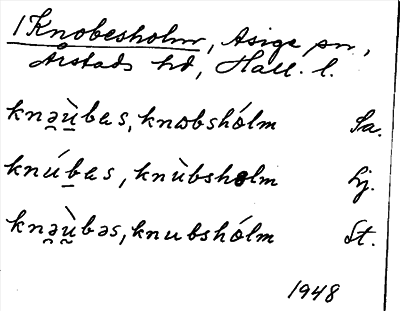 1 Knobesholm, Asige sn,
Årstads hd, Hall. l.
knə̯ù̱bas, knobshólm Sa.
knú̱bas, knùbsholm Lj.
knə̯ù̱bəs, knubshólm St.
1948